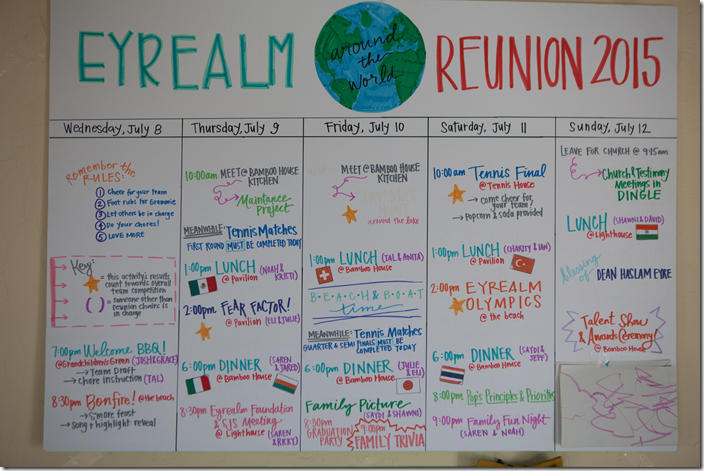 EYREALM around the world REUNION 2015
Wednesday, July 8
Remember the RULES:
1 Cheer for your team
2 Foot rubs for Grammie
3 Let others be in charge
4 Do your chores!
5 LOVE MORE
Key:
= this activity's results
count towards overall
team competition
( ) = someone other than
reunion chairs is
in charge
7:00pm Welcome BBQ!
@Grandchildren's Green (JOSH & GRACE)
→ Team Draft
→ chore instruction (TAL)
8:30pm Bonfire! @ the beach
→ S'more feast
→ song + highlight reveal
Thursday, July 9
10:00am MEET @ BAMBOO HOUSE
KITCHEN
Maintance
Project
MEANWHILE: Tennis Matches
FIRST ROUND MUST BE COMPLETED TODAY
1:00pm LUNCH (NOAH & KRISTI)
@ Pavilion
2:00pm FEAR FACTOR!
@ Pavilion (ELI & JULIE)
6:00pm DINNER (SAREN & JARED)
@ Bamboo House
8:30pm Eyrealm Foundation
& SJS Meeting
@ Lighthouse (SAREN & RKKY)
Friday, July 10
MEET @ BAMBOO HOUSE
KITCHEN
around the lake
1:00pm LUNCH (TAL & ANITA)
@ Bamboo House
BEACH & BOAT
time
MEANWHILE: Tennis Matches
QUARTER & SEMI FINALS MUST BE
COMPLETED TODAY
6:00pm DINNER (JULIE & ELI)
@ Bamboo House
Family Picture
(SAYDI & SHAWNI)
8:30pm
GRADUATION
PARTY
9:00pm
FAMILY TRIVIA
Saturday, July 11
10:00am Tennis Final
@ Tennis House
→ come cheer for
your team!
→ Popcorn & soda provided
1:00pm LUNCH (CHARITY & IAN)
@ Pavilion
2:00pm EYREALM
OLYMPICS
@ the beach
6:00pm DINNER (SAYDI & JEFF)
@ Bamboo House
8:00pm Pop's Principles & Priorities
9:00pm Family Fun Night
(SAREN & NOAH)
Sunday, July 12
LEAVE FOR CHURCH @ 9:15am
Church & Testimony
Meetings in
DINGLE
LUNCH (SHAWNI & DAVID)
@ Lighthouse
Blessing of
DEAN HASLAM EYRE
Talent Show
& Awards Ceremony!
@ Bamboo House